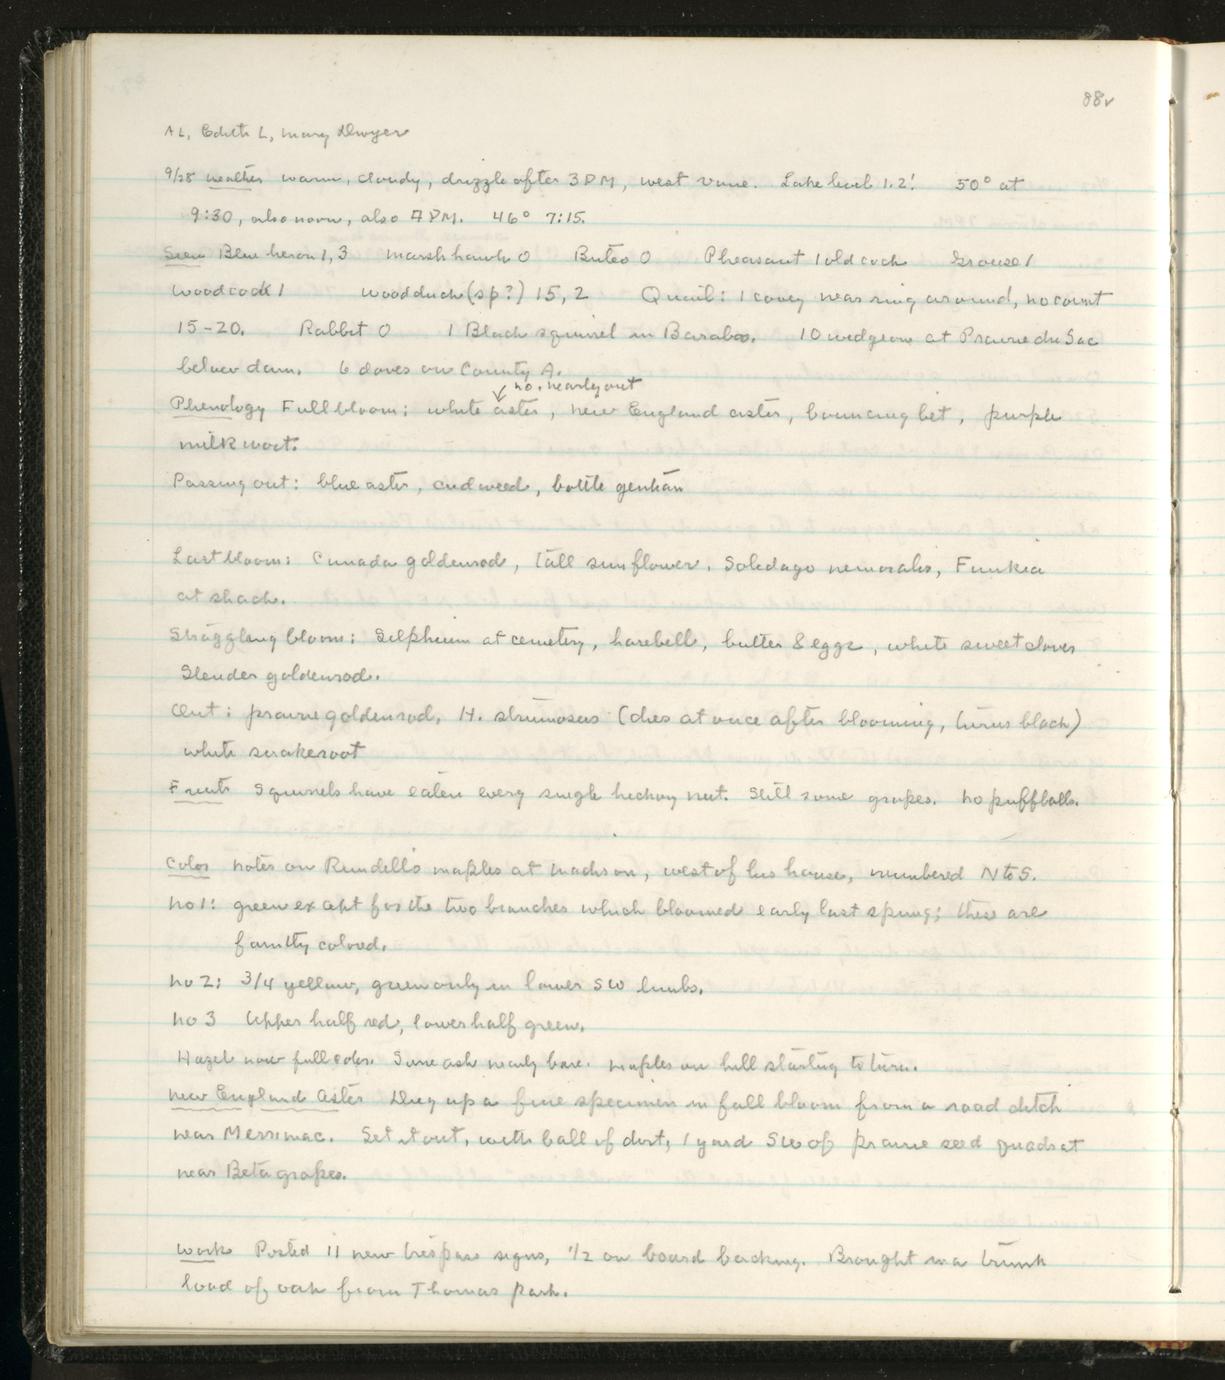 88v
AL, Edith L, Mary Dwyer
9/28 Weather warm, cloudy, drizzle after 3 PM, west vane. Lake level 1.2'. 50° at
9:30, also noon, also 7 PM. 46° 7:15.
Seen Blue heron 1, 3 Marsh hawk 0 Buteo 0 Pheasant 1 old cock Grouse 1
Woodcock 1 Woodduck (sp?) 15, 2 Quail: 1 covey near ring around, no count
15-20. Rabbit 0 1 Black squirrel in Baraboo. 10 widgeon at Prairie du Sac
below dam. 6 doves on County A.
no. nearly out
Phenology Full bloom: white aster, New England aster, bouncing bet, purple
milkwort.
Passing out: blue aster, cudweed, bottle gentian
Last bloom: Canada goldenrod, tall sunflower, Soledago nemoralis, Funkia
at shack.
Straggling bloom: Silphium at cemetery, harebell, butter & eggs, white sweet clover
Slender goldenrod.
Out: prairie goldenrod, H. strumosus (dies at once after blooming, turns black)
white snakeroot
Fruits Squirrels have eaten every single hickory nut. Still some grapes. No puffballs.
Color notes on Rundell's maples at Madison, west of his house, numbered N to S.
No 1: green except for the two branches which bloomed early last spring; these are
faintly colored.
No 2: 3/4 yellow, green only in lower SW limbs.
No 3 Upper half red, lower half green.
Hazel now full color. Some ash nearly bare. Maples on hill starting to turn.
New England Aster Dug up a fine specimen in full bloom from a road ditch
near Merrimac. Set it out, with ball of dirt, 1 yard SW of prairie seed quadrat
near Beta grapes.
Work Posted 11 new trespass signs, 1/2 on board backing. Brought in a trunk
load of oak from Thomas park.